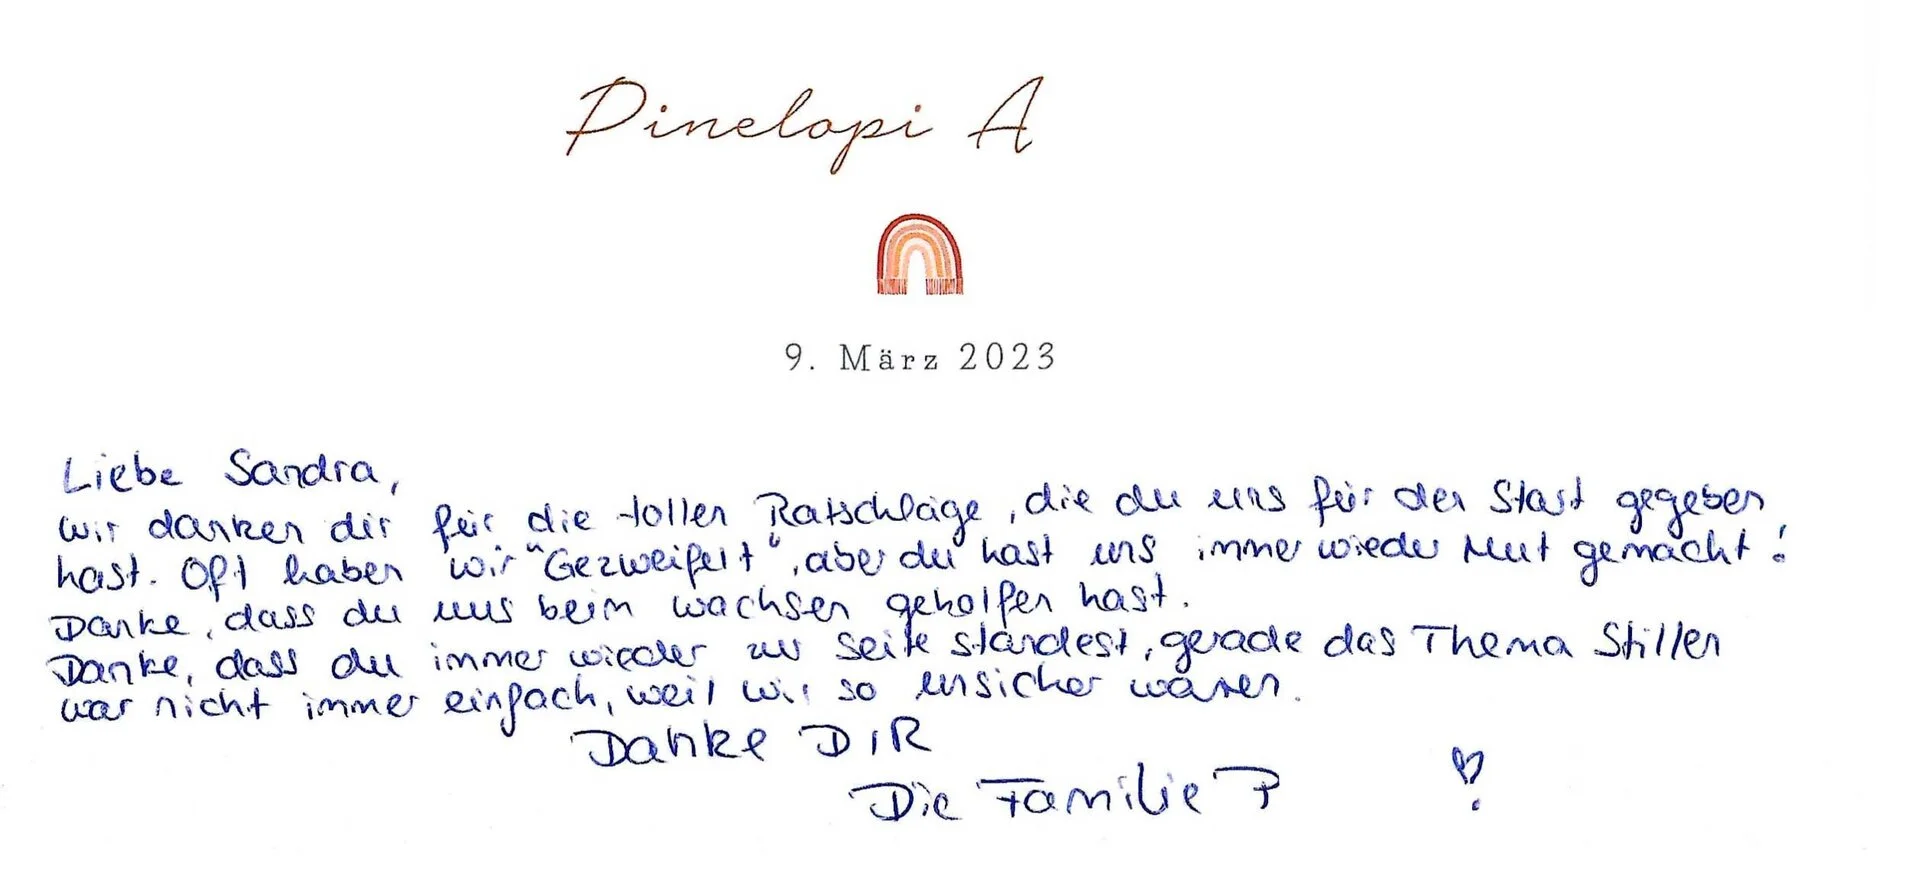 Pinelopi A
9. März 2023
Liebe Sandra,
wir danken dir für die tollen Ratschläge, die du uns für den Start gegeben
hast. Oft haben wir "Gezweifelt", aber du hast uns immer wieder Mut gemacht!
Danke, dass du uns beim wachsen geholfen hast.
Danke, dass du immer wieder zur Seite standest, gerade das Thema Stillen
war nicht immer einfach, weil wir so unsicher waren.
Danke DIR
Die Familie P